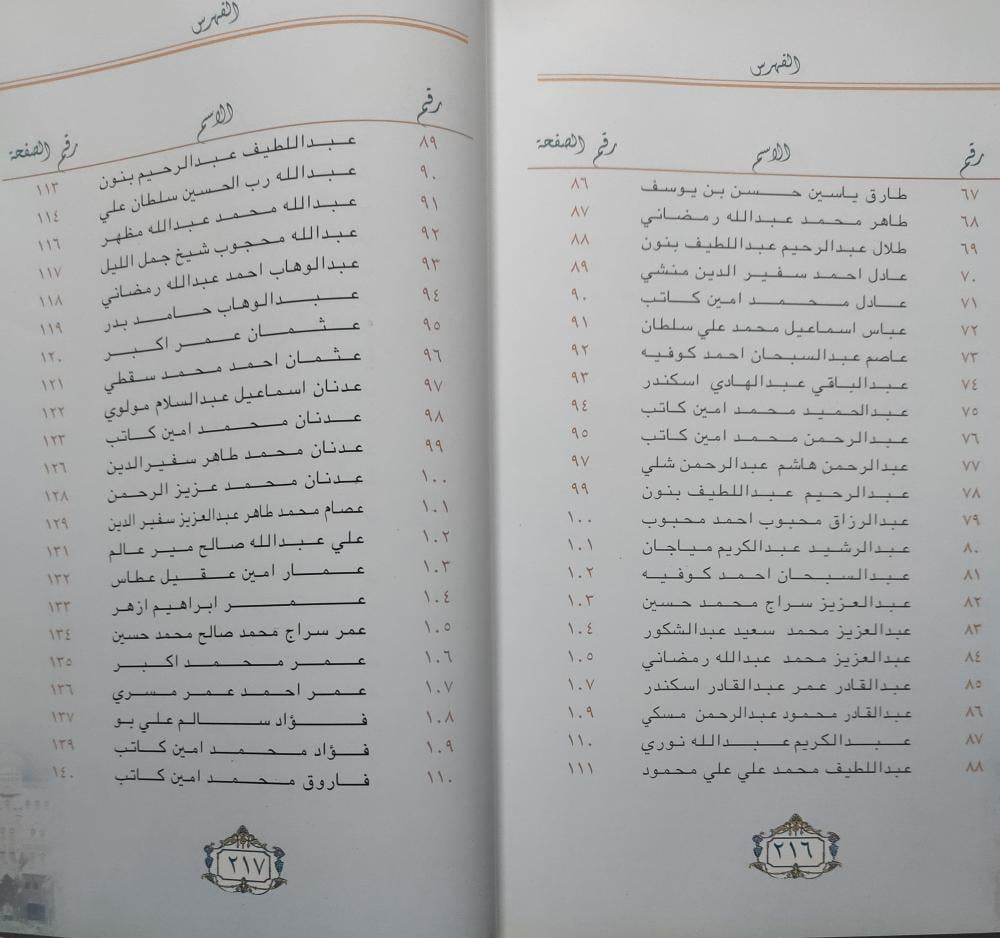 الفهرس
رقم الاسم رقم الصفحة
٦٧ طارق ياسين حسن بن يوسف ٨٦
٦٨ طاهر محمد عبدالله رمضاني ٨٧
٦٩ طلال عبدالرحيم عبداللطيف بنون ٨٨
٧٠ عادل احمد سفير الدين منشي ٨٩
٧١ عادل محمد امين كاتب ٩٠
٧٢ عباس اسماعيل محمد علي سلطان ٩١
٧٣ عاصم عبدالسبحان احمد كوفيه ٩٢
٧٤ عبدالباقي عبدالهادي اسكندر ٩٣
٧٥ عبدالحميد محمد امين كاتب ٩٤
٧٦ عبدالرحمن محمد امين كاتب ٩٥
٧٧ عبدالرحمن هاشم عبدالرحمن شلي ٩٧
٧٨ عبدالرحيم عبداللطيف بنون ٩٩
٧٩ عبدالرزاق محبوب احمد محبوب ١٠٠
٨٠ عبدالرشيد عبدالكريم مياجان ١٠١
٨١ عبدالسبحان احمد كوفيه ١٠٢
٨٢ عبدالعزيز سراج محمد حسين ١٠٣
٨٣ عبدالعزيز محمد سعيد عبدالشكور ١٠٤
٨٤ عبدالعزيز محمد عبدالله رمضاني ١٠٥
٨٥ عبدالقادر عمر عبدالقادر اسكندر ١٠٧
٨٦ عبدالقادر محمود عبدالرحمن مسكي ١٠٩
٨٧ عبدالكريم عبدالله نوري ١١٠
٨٨ عبداللطيف محمد علي علي محمود ١١١
٢١٦
الفهرس
رقم الاسم رقم الصفحة
٨٩ عبداللطيف عبدالرحيم بنون ١١٣
٩٠ عبدالله رب الحسين سلطان علي ١١٤
٩١ عبدالله محمد عبدالله مظهر ١١٦
٩٢ عبدالله محجوب شيخ جمل الليل ١١٧
٩٣ عبدالوهاب احمد عبدالله رمضاني ١١٨
٩٤ عبدالوهاب حامد بدر ١١٩
٩٥ عثمان عمر اكبر ١٢٠
٩٦ عثمان احمد محمد سقطي ١٢١
٩٧ عدنان اسماعيل عبدالسلام مولوي ١٢٢
٩٨ عدنان محمد امين كاتب ١٢٣
٩٩ عدنان محمد طاهر سفيرالدين ١٢٦
١٠٠ عدنان محمد عزيز الرحمن ١٢٨
١٠١ عصام محمد طاهر عبدالعزيز سفير الدين ١٢٩
١٠٢ علي عبدالله صالح مير عالم ١٣١
١٠٣ عمار امين عقيل عطاس ١٣٢
١٠٤ عمر ابراهيم ازهر ١٣٣
١٠٥ عمر سراج محمد صالح محمد حسين ١٣٤
١٠٦ عمر محمد اكبر ١٣٥
١٠٧ عمر احمد عمر مسري ١٣٦
١٠٨ فؤاد سالم علي بو ١٣٧
١٠٩ فؤاد محمد امين كاتب ١٣٩
١١٠ فاروق محمد امين كاتب ١٤٠
٢١٧